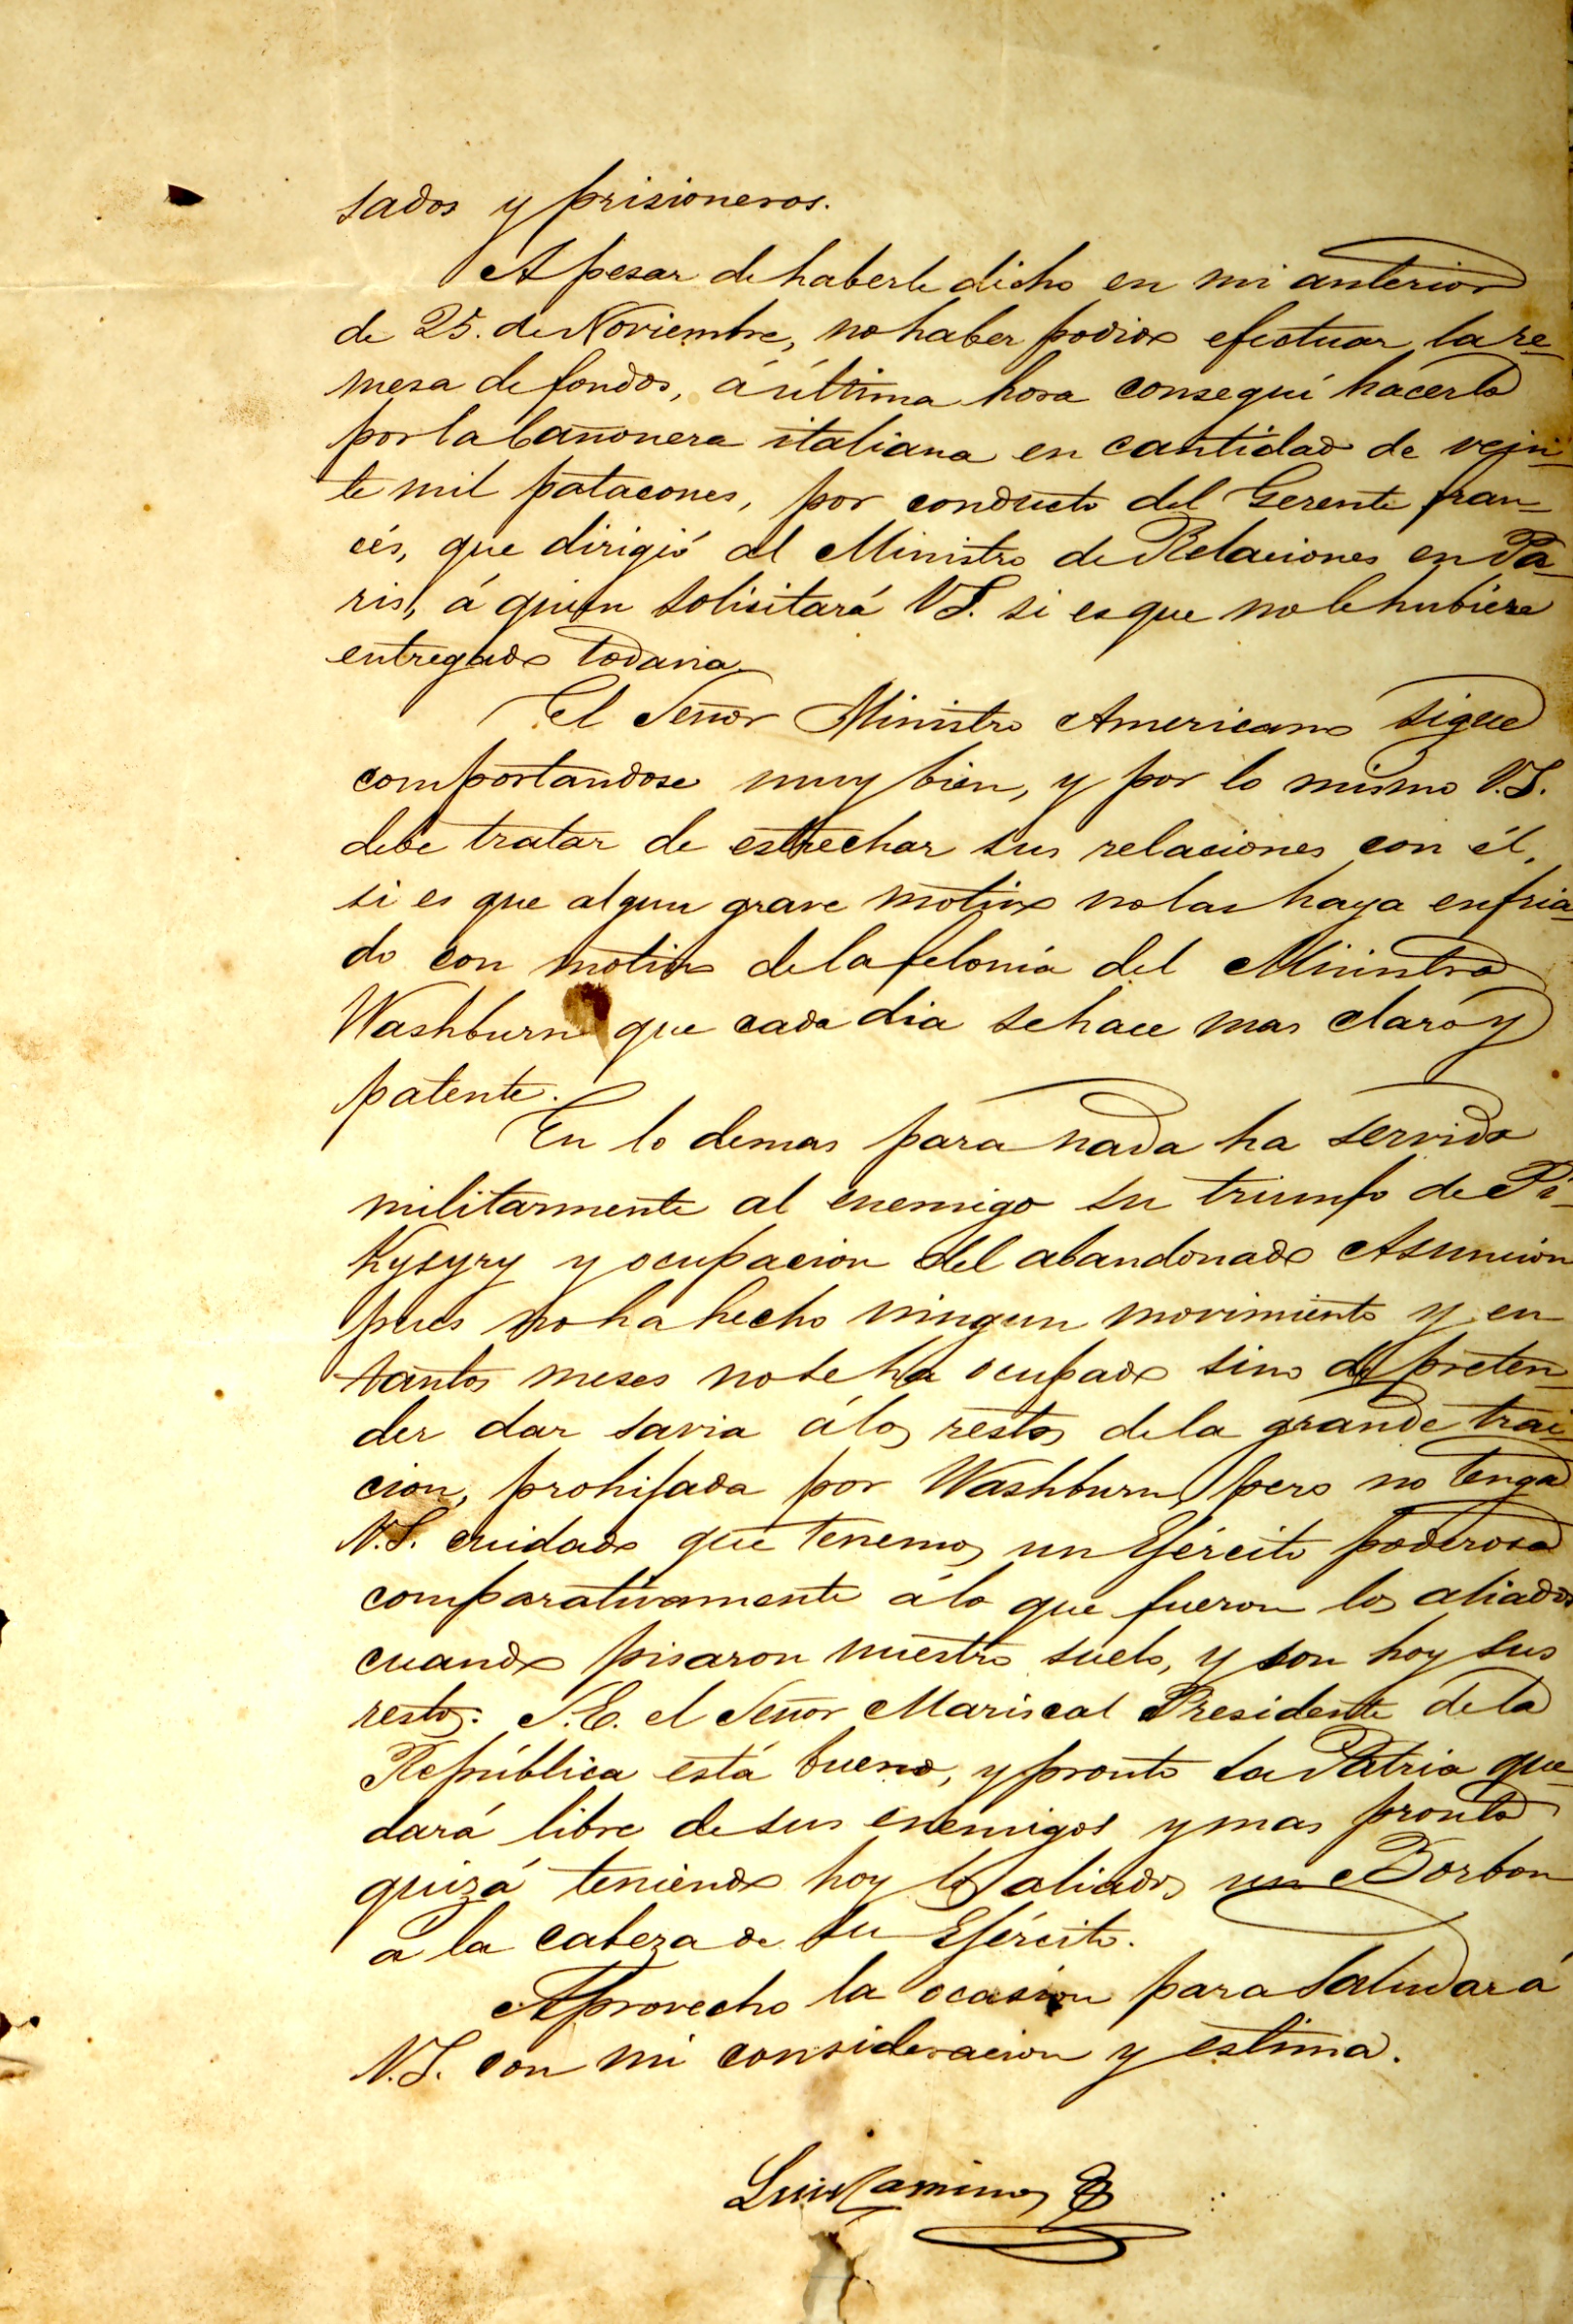 sados y prisioneros.
A pesar de haberle dicho en mi anterior
de 25. de Noviembre, no haber podido efectuar la re-
mesa de fondos, á última hora conseguí hacerlo
por la Cañonera italiana en cantidad de vein-
te mil patacones, por conducto del Gerente fran-
cés, que dirigió al Ministro de Relaciones en Pa-
ris, á quien solicitará V.S. si es que no le hubiere
entregado todavia.
El Señor Ministro Americano sigue
comportandose muy bien, y por lo mismo V.S.
debe tratar de estrechar sus relaciones con él,
si es que algun grave motivo no las haya enfria-
do con motivo de la felonía del Ministro
Washburn que cada dia se hace mas claro y
patente.
En lo demas para nada ha servido
militarmente al enemigo su triunfo de Pi-
Kysyry y ocupacion del abandonado Asuncion
pues no ha hecho ningun movimiento y en
tantos meses no se ha ocupado sino de preten-
der dar savia á los restos de la grande trai-
cion, prohijada por Washburn, pero no tenga
V.S. cuidado que tenemos un Ejército poderoso
comparativamente á lo que fueron los aliados
cuando pisaron nuestro suelo, y son hoy sus
restos. S.E. el Señor Mariscal Presidente de la
República está bueno, y pronto la Patria que-
dará libre de sus enemigos y mas pronto
quizá teniendo hoy los aliados un Borbon
a la cabeza de su Ejército.
Aprovecho la ocasion para saludar á
V.S. con mi consideracion y estima.
Luis Caminos